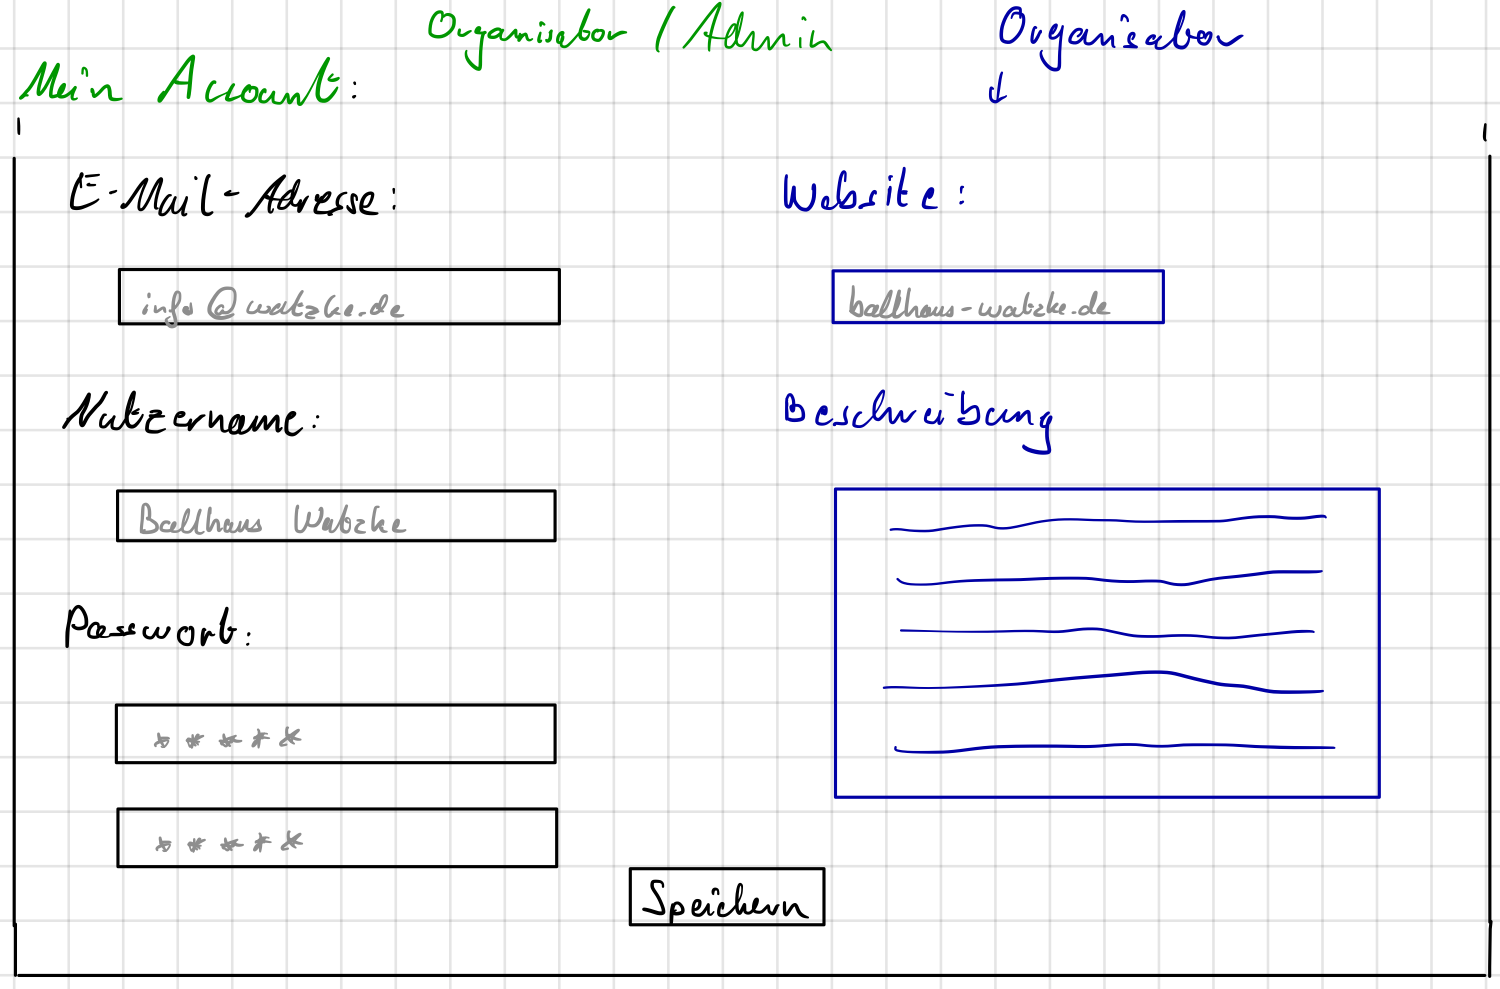 Organisator / Admin
Organisator
Mein Account:
E-Mail-Adresse:
info@watzke.de
Nutzername:
Ballhaus Watzke
Passwort:
*****
*****
Website:
ballhaus-watzke.de
Beschreibung
Speichern